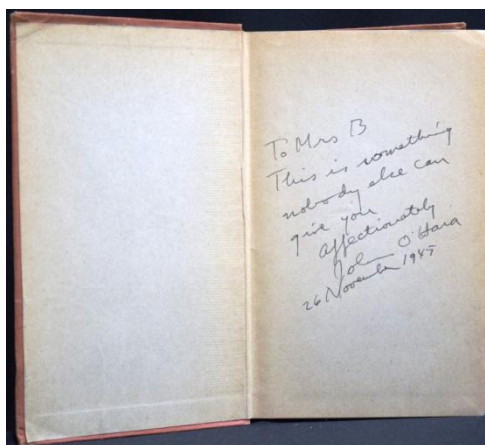 To Mrs B
This is something
nobody else can
give you
affectionately
John O'Hara
26 November 1945